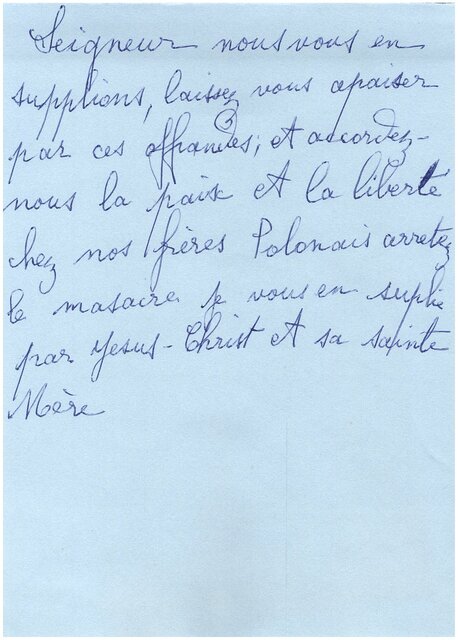 Seigneur nous vous en
supplions, laissez vous apaiser
par ces offrandes; et accordez-
nous la paix et la liberté
chez nos frères Polonais arretez
le masacre je vous en suplie
par Jesus-Christ et sa sainte
Mère